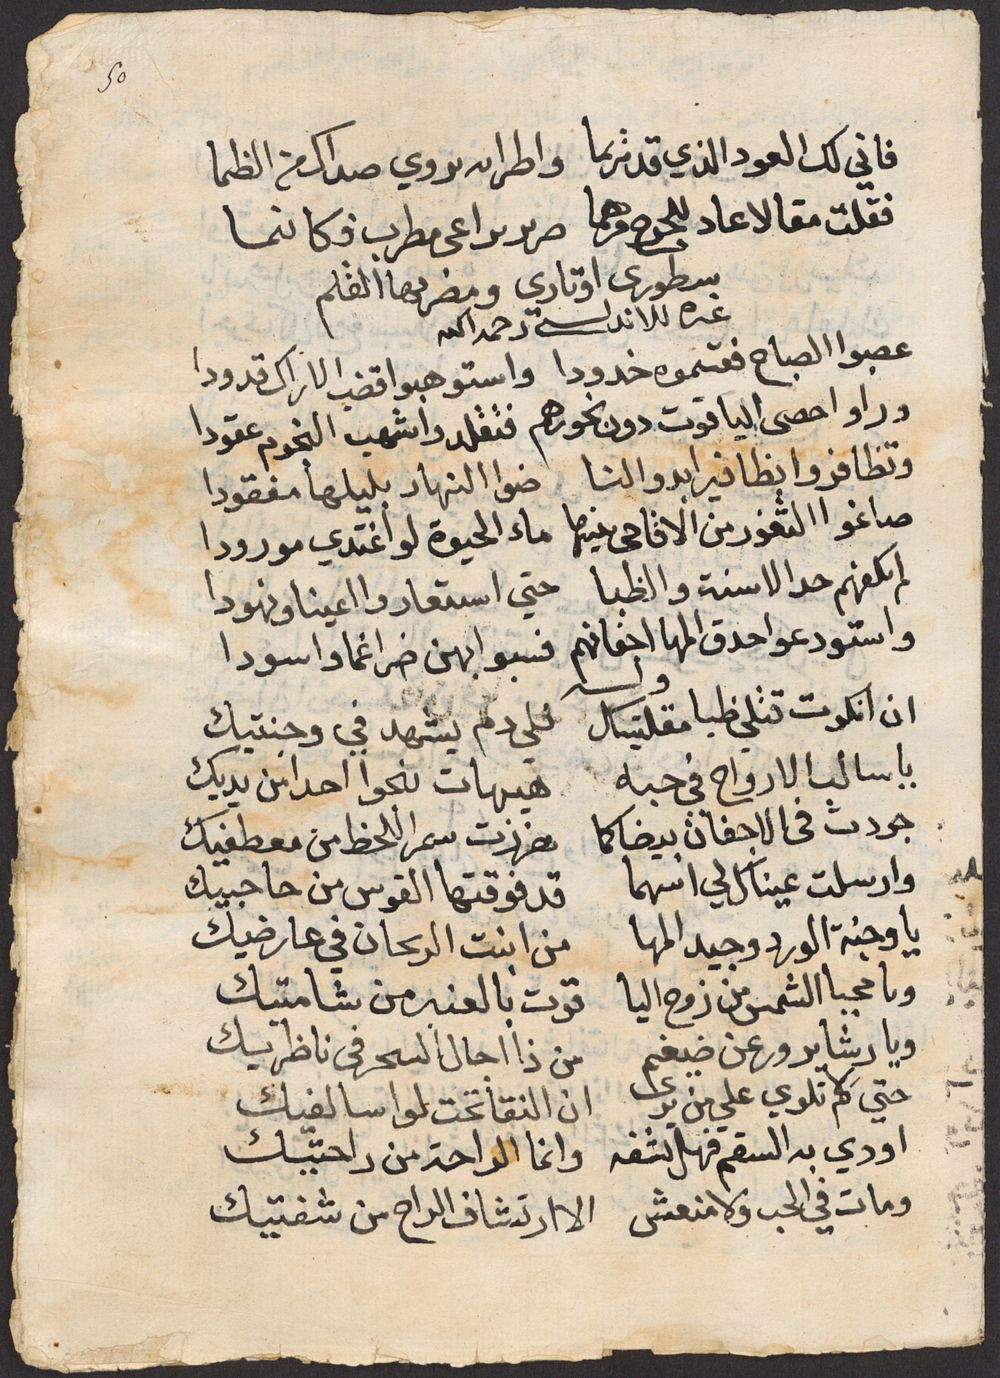 50
فاني لك العود الذي قد ترنما واطرابه يروي صداك من الظما
فقلت مقالا عاد للجرح مرهما صرير يراعى مطرب فكانما
سطورى اوتاري ومضربها القلم
غيره للاندلسي رحمه الله
عصبوا الصباح فقسموه خدودا واستوهبوا قضب الاراك قدودا
وراوا حصى الياقوت دون نحورهم فتقلدوا شهب النجوم عقودا
وتظافروا بظافير ابدو النا ضوا النهار بليلها مفقودا
صاغوا الثغور من الاقاحى بينها ماء الحيوة لو اغتدي مورودا
لم يكفهم حد الاسنة والظبا حتي استعاروا اعينا ونهودا
واستودعوا حدق المها اجفانهم فسبوا بهن ضراغما واسودا
وله
ان انكرت قتلي ظبا مقلتيك فلي دم يشهد في وجنتيك
ياسالب الارواح في حبه هيهات ينجوا احدا من يديك
جردت في الاجفان بيضا كما هززت سمر الخط من معطفيك
وارسلت عيناك لي اسهما قد فوقتها القوس من حاجبيك
يا وجنة الورد وجيد المها من انبت الريحان في عارضيك
ويا محيا الشمس من زوج اليا قوت بالعنبر من شامتيك
ويا رشا يرو عن ضيغم من ذا احال السحر في ناظريك
حتي كم تلوي علي من يرى ان النقا تحت لوا سالفيك
اودي به السقم فهل تشفه وانما الراحة من راحتيك
ومات في الحب ولا منعش الا ارتشاف الراح من شفتيك